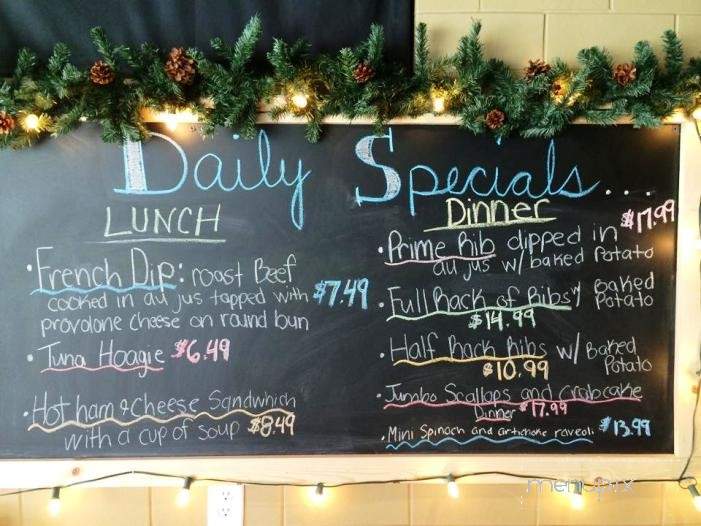 Daily Specials...
LUNCH
• French Dip: roast Beef
cooked in au jus topped with
provolone cheese on round bun
$7.49
• Tuna Hoagie $6.49
• Hot ham & Cheese Sandwhich
with a cup of soup $8.49
Dinner
$17.99
• Prime Rib dipped in
au jus w/ baked Potato
• Full Rack of Ribs w/ Baked
Potato
$14.99
• Half Rack Ribs w/ Baked
Potato
$10.99
• Jumbo Scallops and Crabcake
Dinner $17.99
• Mini Spinach and artichoke raveoli $13.99
menupix